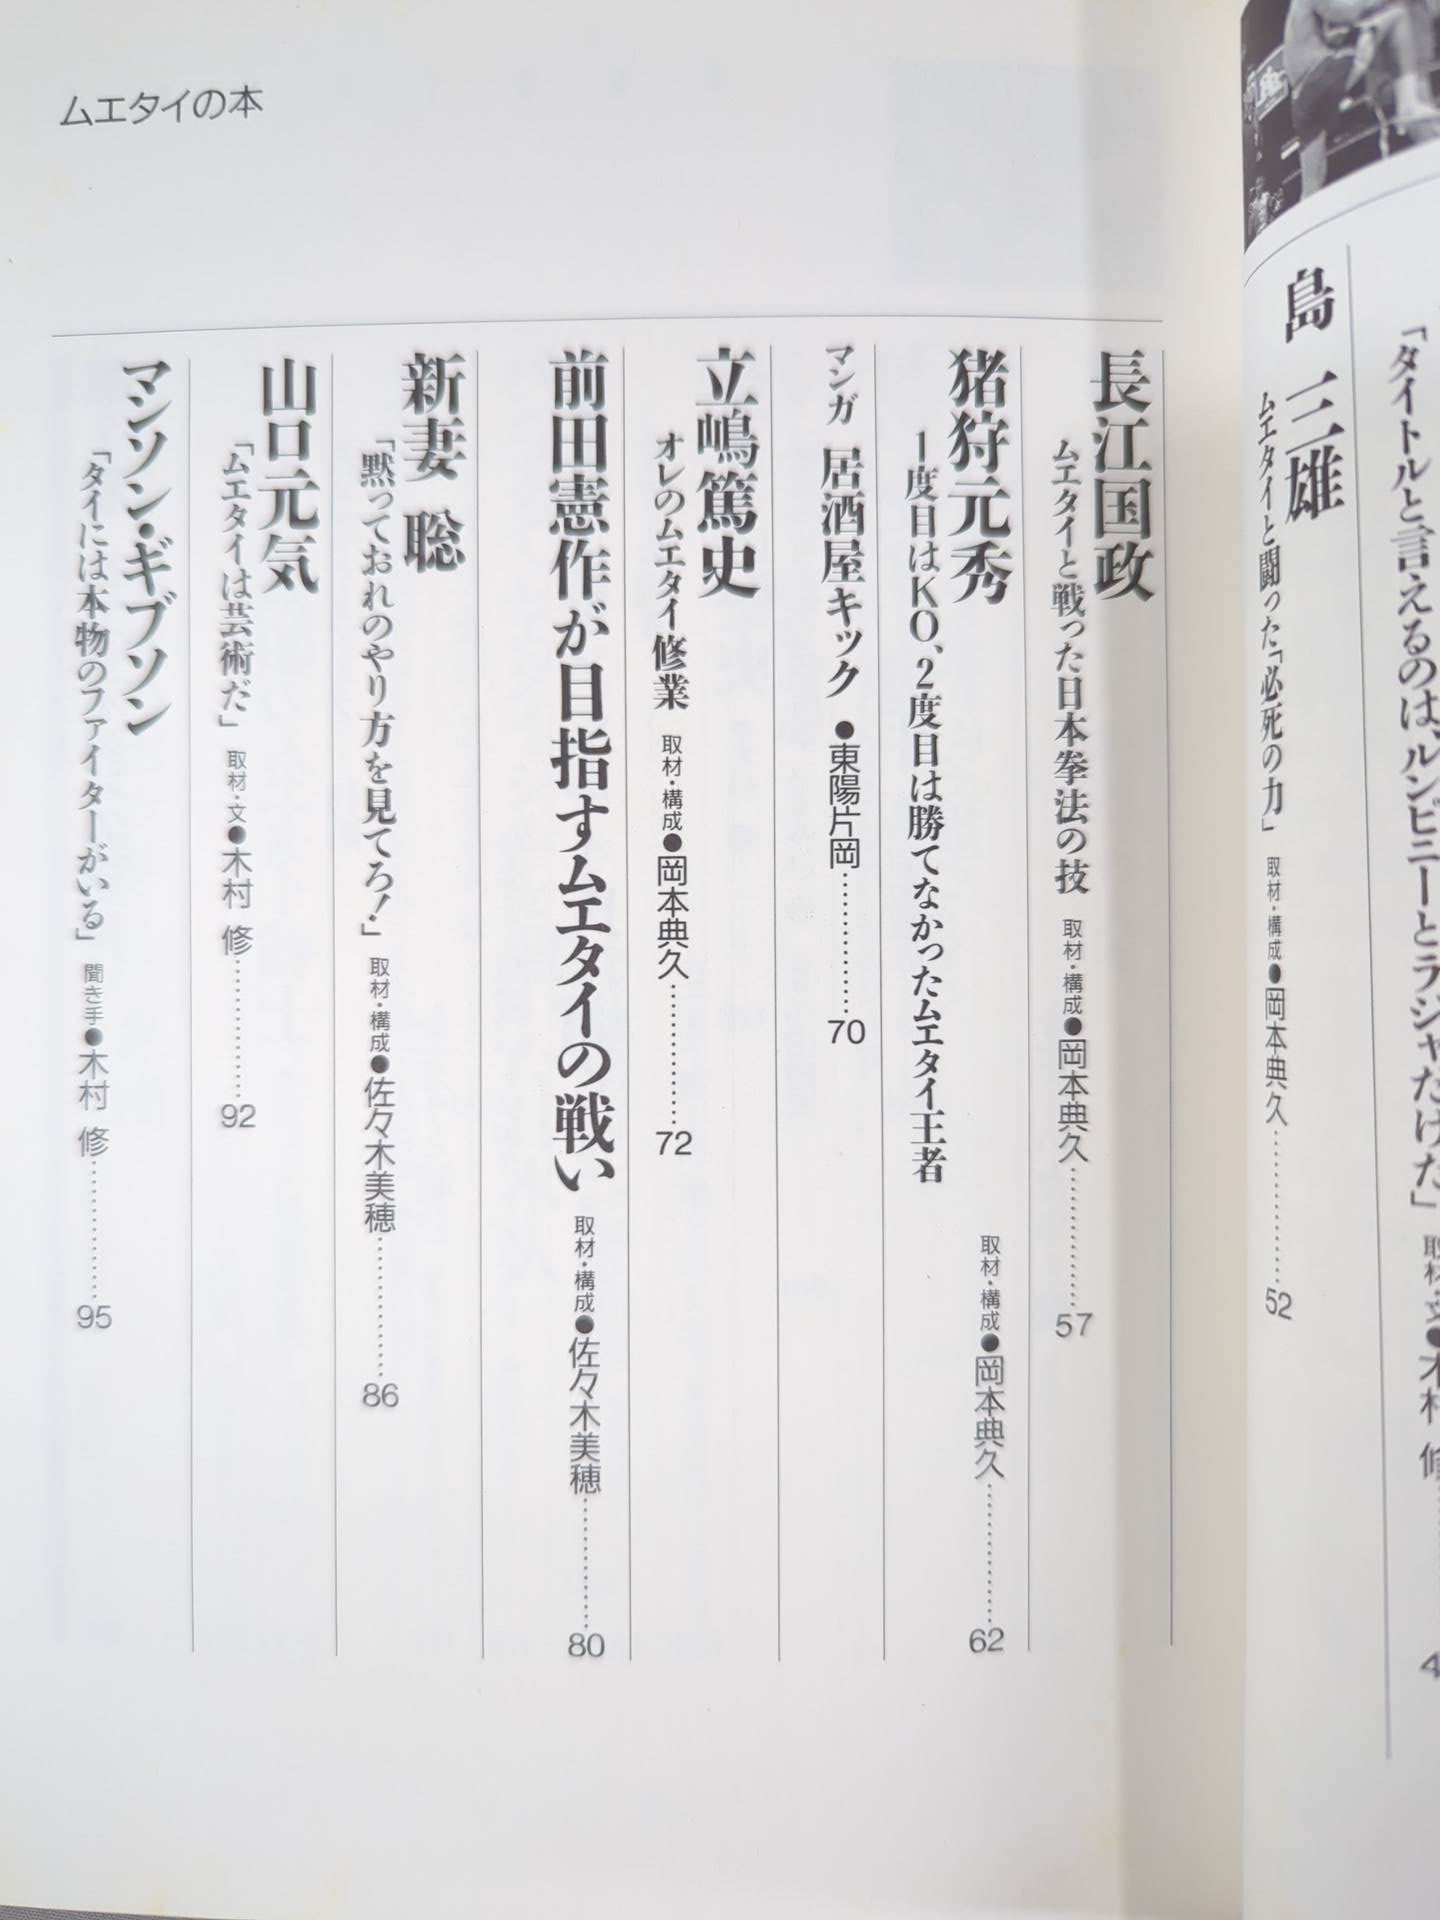 ムエタイの本
「タイトルと言えるのは、ルンピニーとラジャだけだ」
取材・文●木村 修
島 三雄
ムエタイと闘った「必死の力」 取材・構成●岡本典久…………52
長江国政
ムエタイと戦った日本拳法の技 取材・構成●岡本典久…………57
猪狩元秀
1度目はKO、2度目は勝てなかったムエタイ王者
取材・構成●岡本典久…………62
マンガ 居酒屋キック ●東陽片岡…………70
立嶋篤史
オレのムエタイ修業 取材・構成●岡本典久…………72
前田憲作が目指すムエタイの戦い 取材・構成●佐々木美穂…………80
新妻 聡
「黙っておれのやり方を見てろ!」 取材・構成●佐々木美穂…………86
山口元気
「ムエタイは芸術だ」 取材・文●木村 修…………92
マンソン・ギブソン
「タイには本物のファイターがいる」 聞き手●木村 修…………95